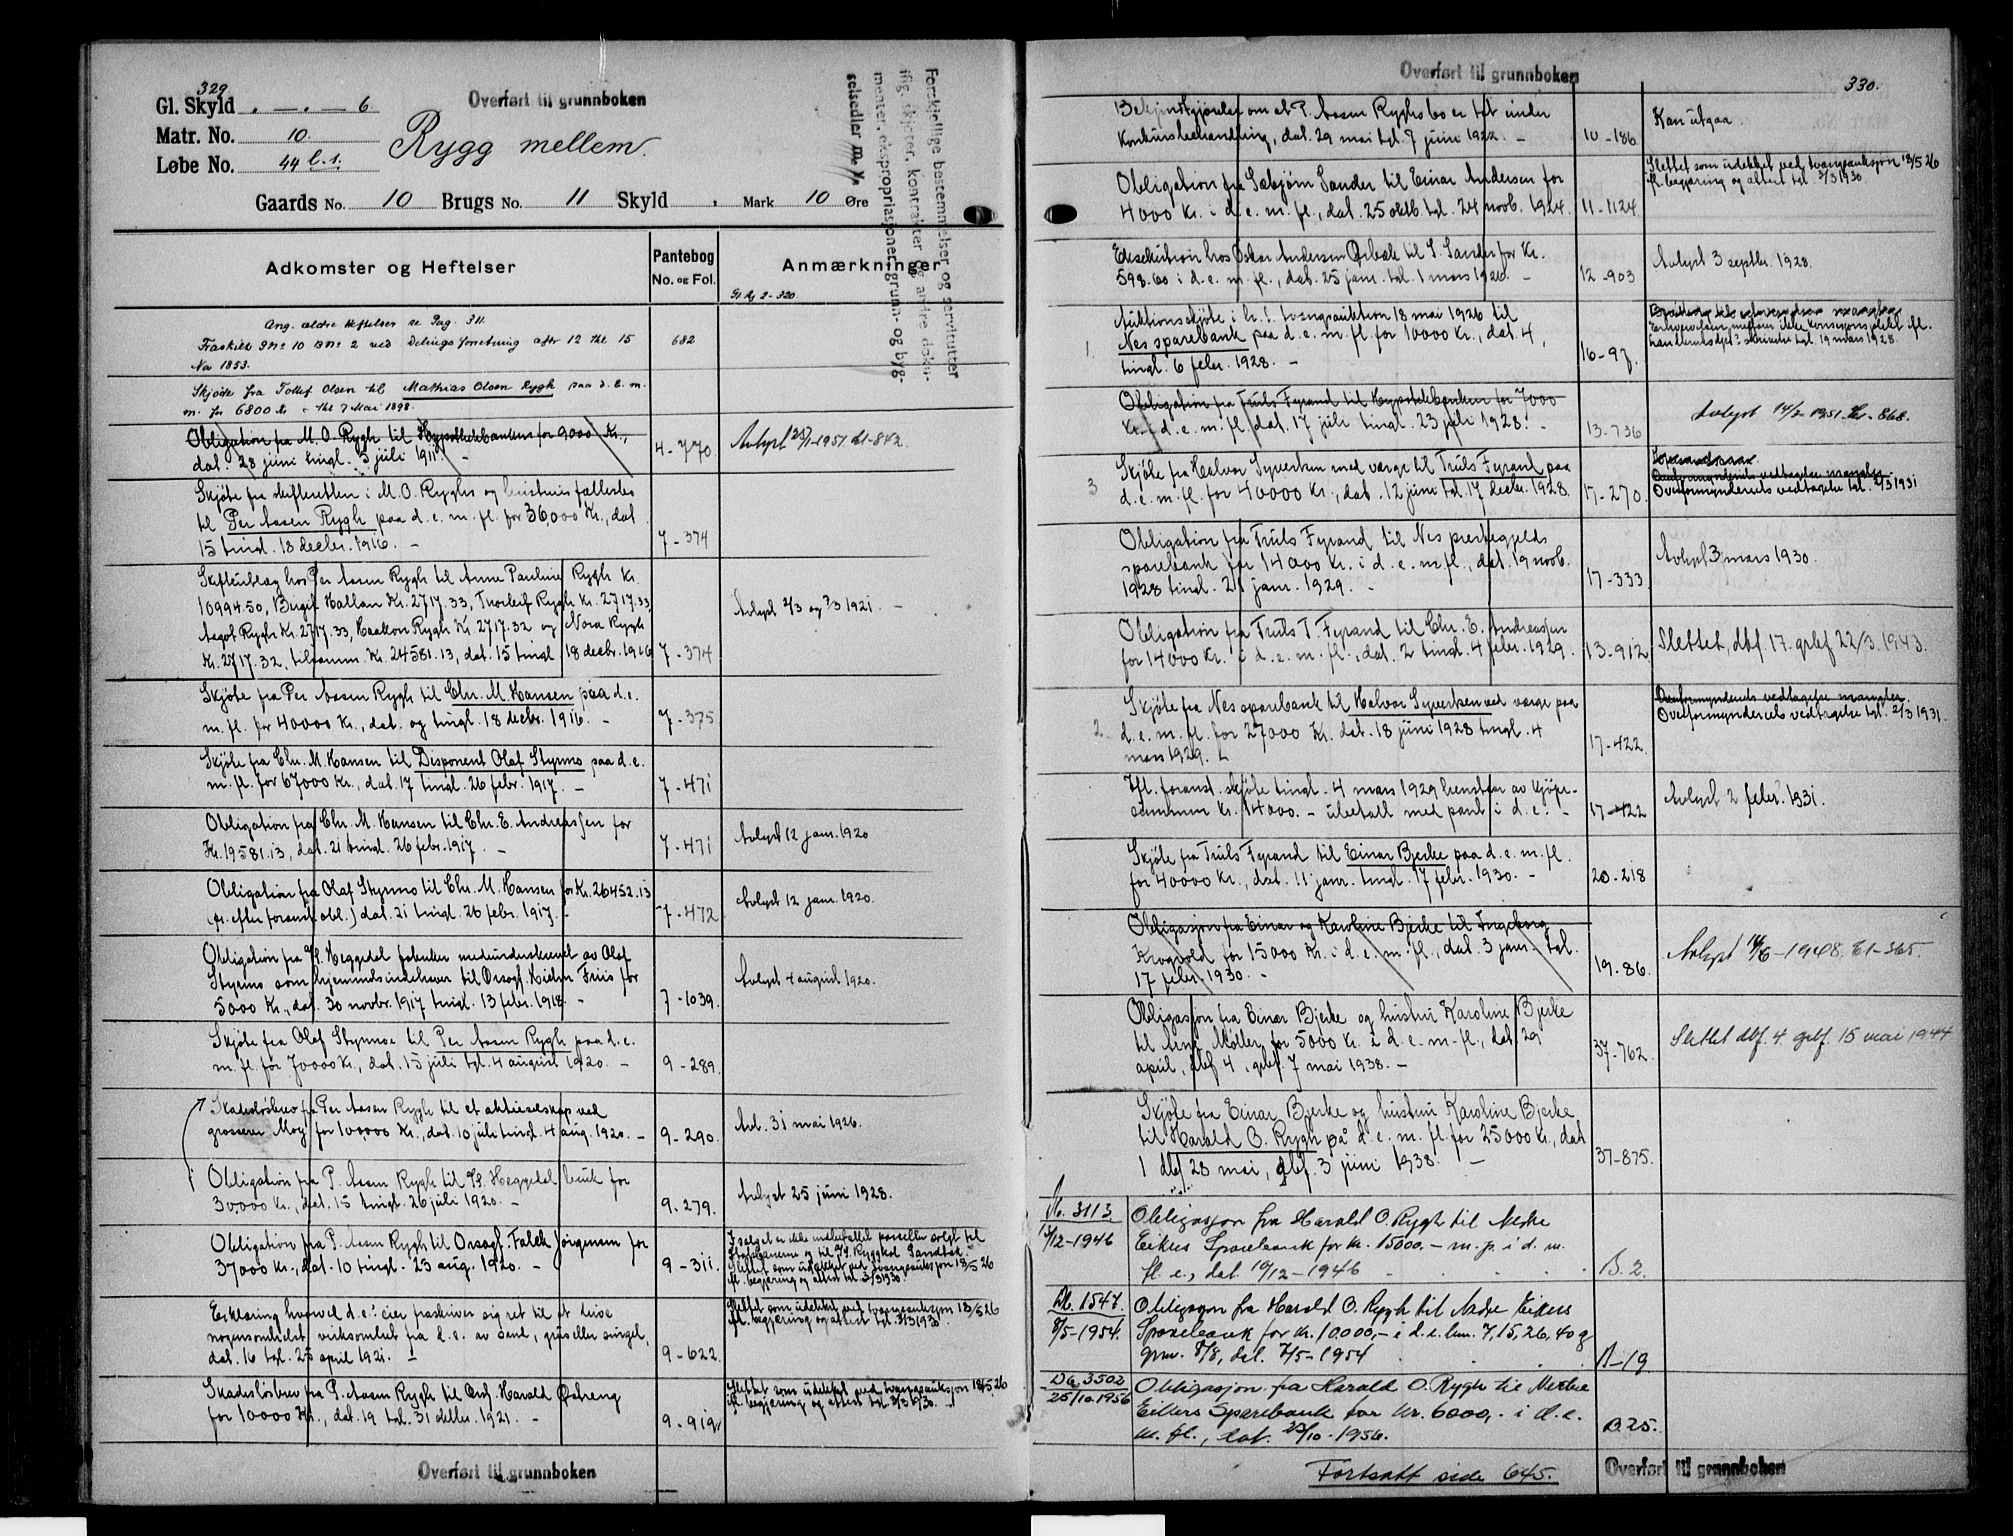 329
Gl. Skyld . — . — 6.
Matr. No. 10.
Løbe No. 44 b. 1.
Overført til grunnboken
Rygg mellem.
Gaards No. 10 Brugs No. 11 Skyld , Mark 10 Øre
Forskjellige bestemmelser og servitutter
iflg. skjøter, kontrakter og andre doku-
menter, ekspropriasjoner, grunn- og byg-
selsedler m. v.
Adkomster og Heftelser
Pantebog
No. og Fol.
Anmærkninger
Gl. Rg 2-320.
Ang. ældre Heftelser se Pag. 311.
Fraskilt GNo 10 BNo 2 ved Delings forretning afh 12 thl 15 682
Nov 1853.
Skjøde fra Tollef Olsen til Mathias Olsen Rygh paa d. E. m.
m. for 6800 Kr - thl 7 Mai 1898.
Obligation fra M. O. Rygh til Hypothekbanken for 9000 Kr.,
dat. 28 juni tingl. 3 juli 1911. - 4-770. Avlyst 25/1-1951 Kl-842.
Skjøte fra skifteretten i M. O. Ryghs og hustrus fællesbo
til Per Aasen Rygh paa d. e. m. fl. for 36000 Kr., dat.
15 tingl. 18 decbr. 1916. - 7-374
Skifteutlæg hos Per Aasen Rygh til Anne Pauline Rygh Kr.
10994.50, Birgit Hallan Kr. 2717.33, Thorleif Rygh Kr. 2717.33,
Aagot Rygh Kr. 2717.33, Haakon Rygh Kr. 2717.32 og Nora Rygh
Kr. 2717.32, tilsamm. Kr. 24581.13, dat. 15 tingl. 18 decbr. 1916 7-374 Avlyst 2/3 og 7/3 1921. -
Skjøte fra Per Aasen Rygh til Chr. M. Hansen paa d. e.
m. fl. for 40000 Kr., dat. og tingl. 18 decbr. 1916. - 7-375
Skjøte fra Chr. M. Hansen til Disponent Olaf Styrmo paa d. e.
m. fl. for 67000 Kr., dat. 17 tingl. 26 febr. 1917. - 7-471
Obligation fra Chr. M. Hansen til Chr. E. Andreassen for
Kr. 19581.13, dat. 21 tingl. 26 febr. 1917. - 7-471 Avlyst 12 jan. 1920
Obligation fra Olaf Styrmo til Chr. M. Hansen for Kr. 26452.13
(pr. efter foranst. obl.) dat. 21 tingl. 26 febr. 1917. - 7-472 Avlyst 12 jan. 1920.
Obligation fra A/S. Heggedal fabriker medunderskrevet av Olaf
Styrmo som hjemmelsindehaver til Orsagf. Kielen Friis for
5000 Kr., dat. 30 novbr. 1917 tingl. 13 febr. 1918. - 7-1039. Avlyst 4 august 1920.
Skjøte fra Olaf Styrmoe til Per Aasen Rygh paa d. e.
m. fl. for 70000 Kr., dat. 15 juli tgl. 4 august 1920. - 9-289.
Skadesløsbrev fra Per Aasen Rygh til et aktieselskap ved
grosserer Moy for 100,000 Kr., dat. 10 juli tingl. 4 aug. 1920. - 9-290. Avl. 31 mai 1926.
Obligation fra P. Aasen Rygh til A/S. Heggedal bruk for
30,000 Kr., dat. 15 tingl. 26 juli 1920. - 9-279. Avlyst 25 juni 1928.
Obligation fra P. Aasen Rygh til Orsagf. Falck Jørgensen for
37000 Kr., dat. 10 tingl. 23 aug. 1920. - 9-311.
Slettet som udekket ved tvangsauksjon 18/5 26
fl. begjæring og attest tgl. 3/3 1930.
Erklæring hvorved d. e.s eier fraskriver sig ret til at leire
nogensomhelst virksomhet fra d. e. av sand, grus eller singel,
dat. 16 tgl. 25 april 1921. - 9-622.
Slettet som udekket ved tvangsauksjon 18/5 26
fl. begjæring og attest tgl. 3/3 1930.
Skadesløsbrev fra P. Aasen Rygh til Orsf. Harald Østreng
for 10000 Kr., dat. 19 tgl. 31 decbr. 1921. - 9-919.
Slettet som udekket ved tvangsauksjon 18/5 26
fl. begjæring og attest tgl. 3/3 1930.
Overført til grunnboken
Overført til grunnboken
330.
Bekjendtgjørelse om at P. Aasen Ryghs bo er tat under
konkursbehandling, dat. 29 mai tgl. 7 juni 1922. - 10-186. Kan utgaa
Obligation fra Sæbjørn Sander til Einar Andersen for
4000 Kr. i d. e. m. fl., dat. 25 oktb. tgl. 24 novb. 1924. 11-1124
Slettet som udekket ved tvangsauksjon 18/5 26
fl. begjæring og attest tgl. 3/3 1930.
Eksekution hos Oskar Andersen Ørbæk til S. Sander for Kr.
598.60 i d. e. m. fl., dat. 25 janr. tgl. 1 mars 1926. - 12-903 Avlyst 3 septbr. 1928.
1. Auktionsskjøte i h. t. tvangsauktion 18 mai 1926 til
Nes sparebank paa d. e. m. fl. for 10000 Kr., dat. 4,
tingl. 6 febr. 1928. - 16-97.
landbruksdept.s skrivelse tgl. 19 mars 1928.
Obligation fra Truls Fyrand til Hypotekbanken for 7000
Kr. i d. e. m. fl. dat. 17 juli tingl. 23 juli 1928. - 13-736 Avlyst 14/2-1951. Kr-868.
3 Skjøte fra Halvor Syversen med værge til Truls Fyrand paa
d. e. m. fl. for 40000 Kr., dat. 12 juni tgl. 17 decbr. 1928. 17-270.
Overformynderiets vedtagelse mangler.
Overformynderiets vedtagelse tgl. 2/3 1931
Obligation fra Truls Fyrand til Nes prestegjelds
sparebank for 14000 Kr. i d. e. m. fl., dat. 19 novb.
1928 tingl. 21 janr. 1929. - 17-333 Avlyst 3 mars 1930.
Obligation fra Truls T. Fyrand til Chr. E. Andreassen
for 14000 Kr. i d. e. m. fl., dat. 2 tingl. 4 febr. 1929. 13-912. Slettet, dbf. 17. grbf 22/3. 1943.
2. Skjøte fra Nes sparebank til Halvor Syversen ved værge paa
d. e. m. fl. for 27000 Kr. dat. 18 juni 1928 tingl. 4
mars 1929. 17-422.
Overformynderiets vedtagelse mangler.
Overformynderiets vedtagelse tgl. 2/3 1931.
Ifl. foranst. skjøte tingl. 4 mars 1929 henstaar av kjøpe-
summen Kr. 14000.- ubetalt med pant i d. e. - 17-422 Avlyst 2 febr. 1931.
Skjøte fra Truls Fyrand til Einar Bjerke paa d. e. m. fl.
for 40000 Kr., dat. 11 janr. tingl. 17 febr. 1930. - 20-218
Obligasjon fra Einar og Karoline Bjerke til Ingeborg
Krogvold for 15000 Kr. i d. e. m. fl., dat. 3 janr. tgl.
17 febr. 1930. - 19-86. Avlyst 14/6-1948. Kl-365.
Obligasjon fra Einar Bjerke og hustru Karoline Bjerke
til Arne Møller for 5000 Kr. i d. e. m. fl., dat. 29
april, dbf 4, grbf. 7 mai 1938. - 37-762. Slettet dbf. 4. grbf. 15 mai 1944
Skjøte fra Einar Bjerke og hustru Karoline Bjerke
til Harald O. Rygh på d. e. m. fl. for 25000 Kr., dat.
1 dbf 28 mai, grbf. 3 juni 1938. - 37-875.
No. 3113 Obligasjon fra Harald O. Rygh til Nedre
13/12-1946 Eikers Sparebank for kr. 15000.- m. p. i d. m.
fl. e., dat. 10/12-1946 B. 2.
Db. 1547. Obligasjon fra Harald O. Rygh til Nedre Eikers
8/5-1954. Sparebank for kr. 10.000,- i d. e. bnr. 7, 15, 26, 40 g
gnr. 8/8, dat. 7/5-1954 B-19
Db. 3502 Obligasjon fra Harald O. Rygh til Nedre
25/10.1956 Eikers Sparebank for kr. 6000,- i d. e.
m. fl., dat. 23/10-1956. B. 25.
Fortsatt side 645.
Overført til grunnboken